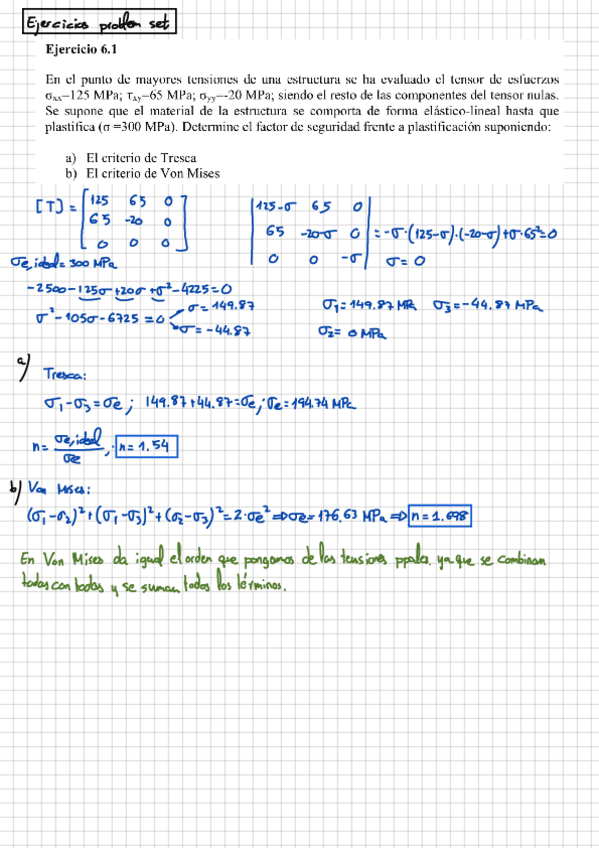 Ejercicios problem set
Ejercicio 6.1
En el punto de mayores tensiones de una estructura se ha evaluado el tensor de esfuerzos
σxx=125 MPa; τxy=65 MPa; σyy=-20 MPa; siendo el resto de las componentes del tensor nulas.
Se supone que el material de la estructura se comporta de forma elástico-lineal hasta que
plastifica (σ =300 MPa). Determine el factor de seguridad frente a plastificación suponiendo:
a) El criterio de Tresca
b) El criterio de Von Mises
[T] = [125 65 0
65 -20 0
0 0 0]
|125-σ 65 0
65 -20-σ 0
0 0 -σ| = -σ·(125-σ)·(-20-σ)+σ·65²=0
σ=0
σe,ideal = 300 MPa
-2500-125σ+20σ+σ²-4225=0
σ²-105σ-6725=0
σ=149.87
σ=-44.87
σ₁=149.87 MPa σ₃=-44.87 MPa
σ₂= 0 MPa
a) Tresca:
σ₁-σ₃=σe; 149.87+44.87=σe; σe=194.74 MPa
n= σe,ideal/σe; n=1.54
b) Von Mises:
(σ₁-σ₂)²+(σ₁-σ₃)²+(σ₂-σ₃)²=2·σe²⇒σe=176.63 MPa⇒ n=1.698
En Von Mises da igual el orden que pongamos de las tensiones ppales, ya que se combinan
todas con todas y se suman todos los términos.